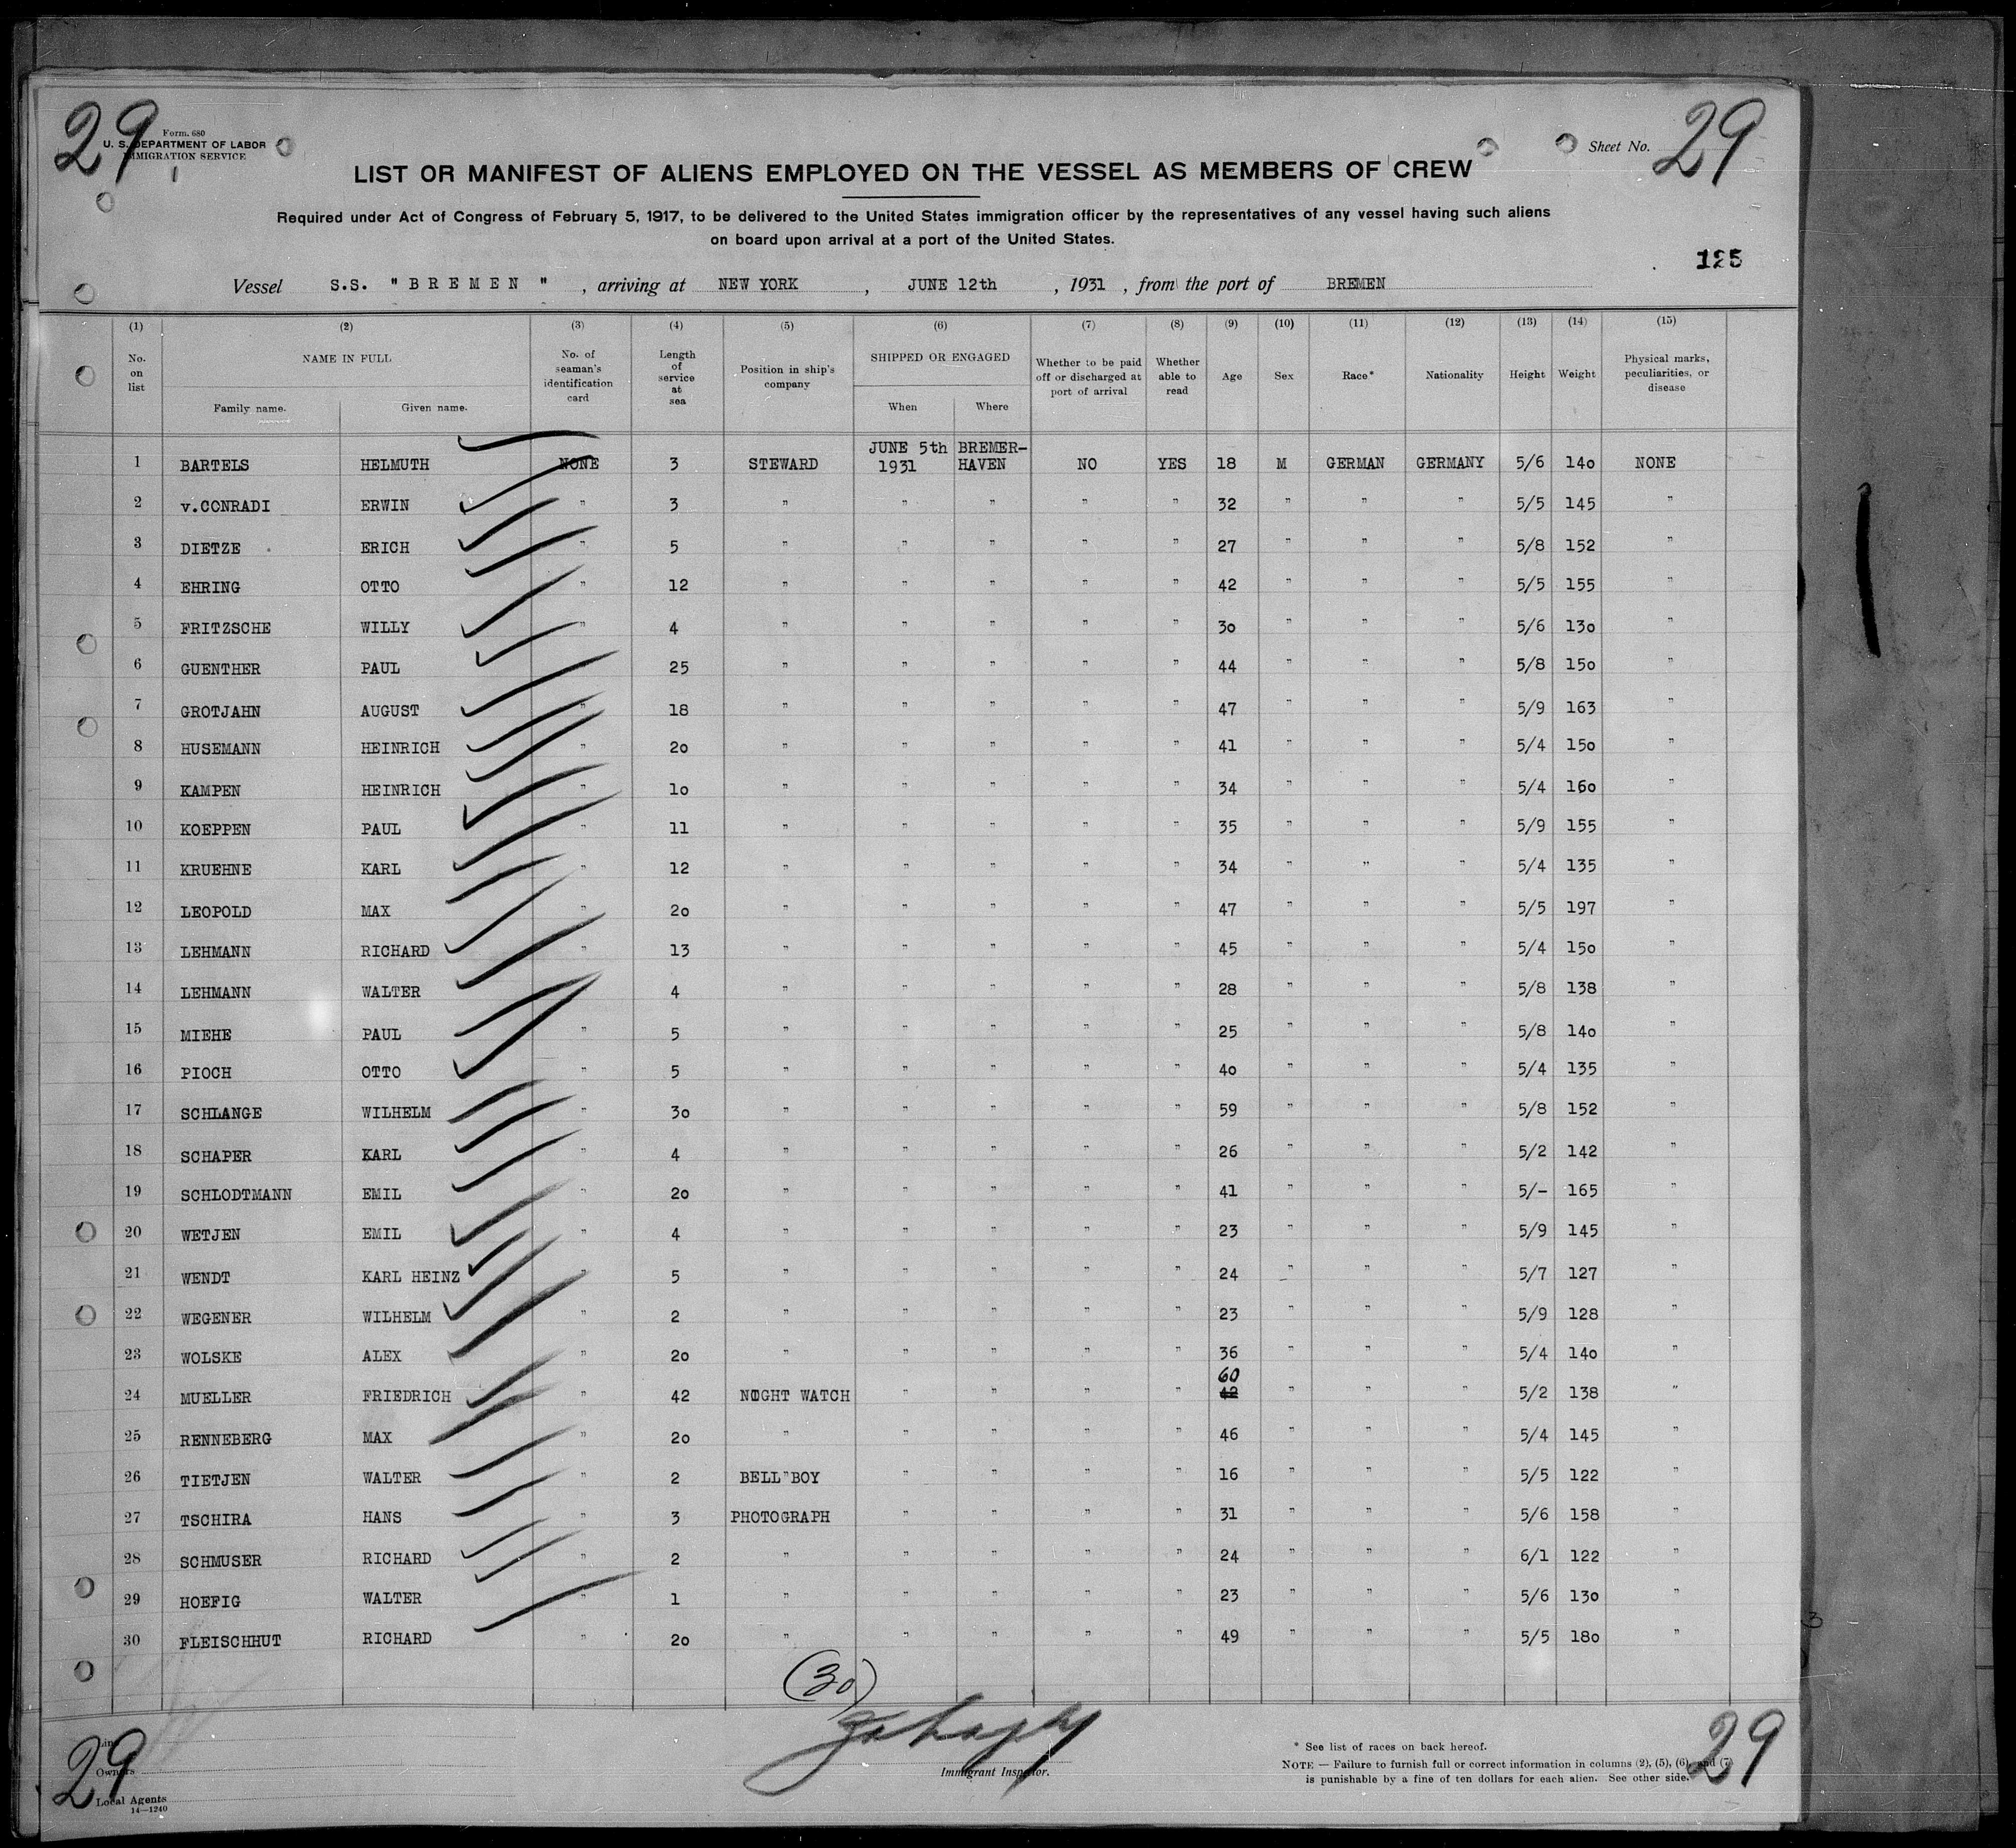 29 Form. 680 29
U. S. DEPARTMENT OF LABOR
IMMIGRATION SERVICE
Sheet No.
LIST OR MANIFEST OF ALIENS EMPLOYED ON THE VESSEL AS MEMBERS OF CREW
Required under Act of Congress of February 5, 1917, to be delivered to the United States immigration officer by the representatives of any vessel having such aliens
on board upon arrival at a port of the United States.
125
Vessel S.S. "BREMEN", arriving at NEW YORK, JUNE 12th, 1931, from the port of BREMEN
(1) (2) (3) (4) (5) (6) (7) (8) (9) (10) (11) (12) (13) (14) (15)
No. on list NAME IN FULL Family name. Given name. No. of seaman's identification card Length of service at sea Position in ship's company SHIPPED OR ENGAGED When Where Whether to be paid off or discharged at port of arrival Whether able to read Age Sex Race* Nationality Height Weight Physical marks, peculiarities, or disease
1 BARTELS HELMUTH NONE 3 STEWARD JUNE 5th 1931 BREMER-HAVEN NO YES 18 M GERMAN GERMANY 5/6 14o NONE
2 v.CONRADI ERWIN " 3 " " " " " 32 " " " 5/5 145 "
3 DIETZE ERICH " 5 " " " " " 27 " " " 5/8 152 "
4 EHRING OTTO " 12 " " " " " 42 " " " 5/5 155 "
5 FRITZSCHE WILLY " 4 " " " " " 3o " " " 5/6 13o "
6 GUENTHER PAUL " 25 " " " " " 44 " " " 5/8 15o "
7 GROTJAHN AUGUST " 18 " " " " " 47 " " " 5/9 163 "
8 HUSEMANN HEINRICH " 2o " " " " " 41 " " " 5/4 15o "
9 KAMPEN HEINRICH " 1o " " " " " 34 " " " 5/4 16o "
10 KOEPPEN PAUL " 11 " " " " " 35 " " " 5/9 155 "
11 KRUEHNE KARL " 12 " " " " " 34 " " " 5/4 135 "
12 LEOPOLD MAX " 2o " " " " " 47 " " " 5/5 197 "
13 LEHMANN RICHARD " 13 " " " " " 45 " " " 5/4 15o "
14 LEHMANN WALTER " 4 " " " " " 28 " " " 5/8 138 "
15 MIEHE PAUL " 5 " " " " " 25 " " " 5/8 14o "
16 PIOCH OTTO " 5 " " " " " 4o " " " 5/4 135 "
17 SCHLANGE WILHELM " 3o " " " " " 59 " " " 5/8 152 "
18 SCHAPER KARL " 4 " " " " " 26 " " " 5/2 142 "
19 SCHLODTMANN EMIL " 2o " " " " " 41 " " " 5/- 165 "
20 WETJEN EMIL " 4 " " " " " 23 " " " 5/9 145 "
21 WENDT KARL HEINZ " 5 " " " " " 24 " " " 5/7 127 "
22 WEGENER WILHELM " 2 " " " " " 23 " " " 5/9 128 "
23 WOLSKE ALEX " 2o " " " " " 36 " " " 5/4 14o "
60
24 MUELLER FRIEDRICH " 42 NIGHT WATCH " " " " 42 " " " 5/2 138 "
25 RENNEBERG MAX " 2o " " " " " 46 " " " 5/4 145 "
26 TIETJEN WALTER " 2 BELL"BOY " " " " 16 " " " 5/5 122 "
27 TSCHIRA HANS " 3 PHOTOGRAPH " " " " 31 " " " 5/6 158 "
28 SCHMUSER RICHARD " 2 " " " " " 24 " " " 6/1 122 "
29 HOEFIG WALTER " 1 " " " " " 23 " " " 5/6 13o "
30 FLEISCHHUT RICHARD " 2o " " " " " 49 " " " 5/5 18o "
(30)
Immigrant Inspector.
* See list of races on back hereof.
NOTE — Failure to furnish full or correct information in columns (2), (5), (6), and (7)
is punishable by a fine of ten dollars for each alien. See other side.
29 29
Line
Owners
Local Agents
14—1240